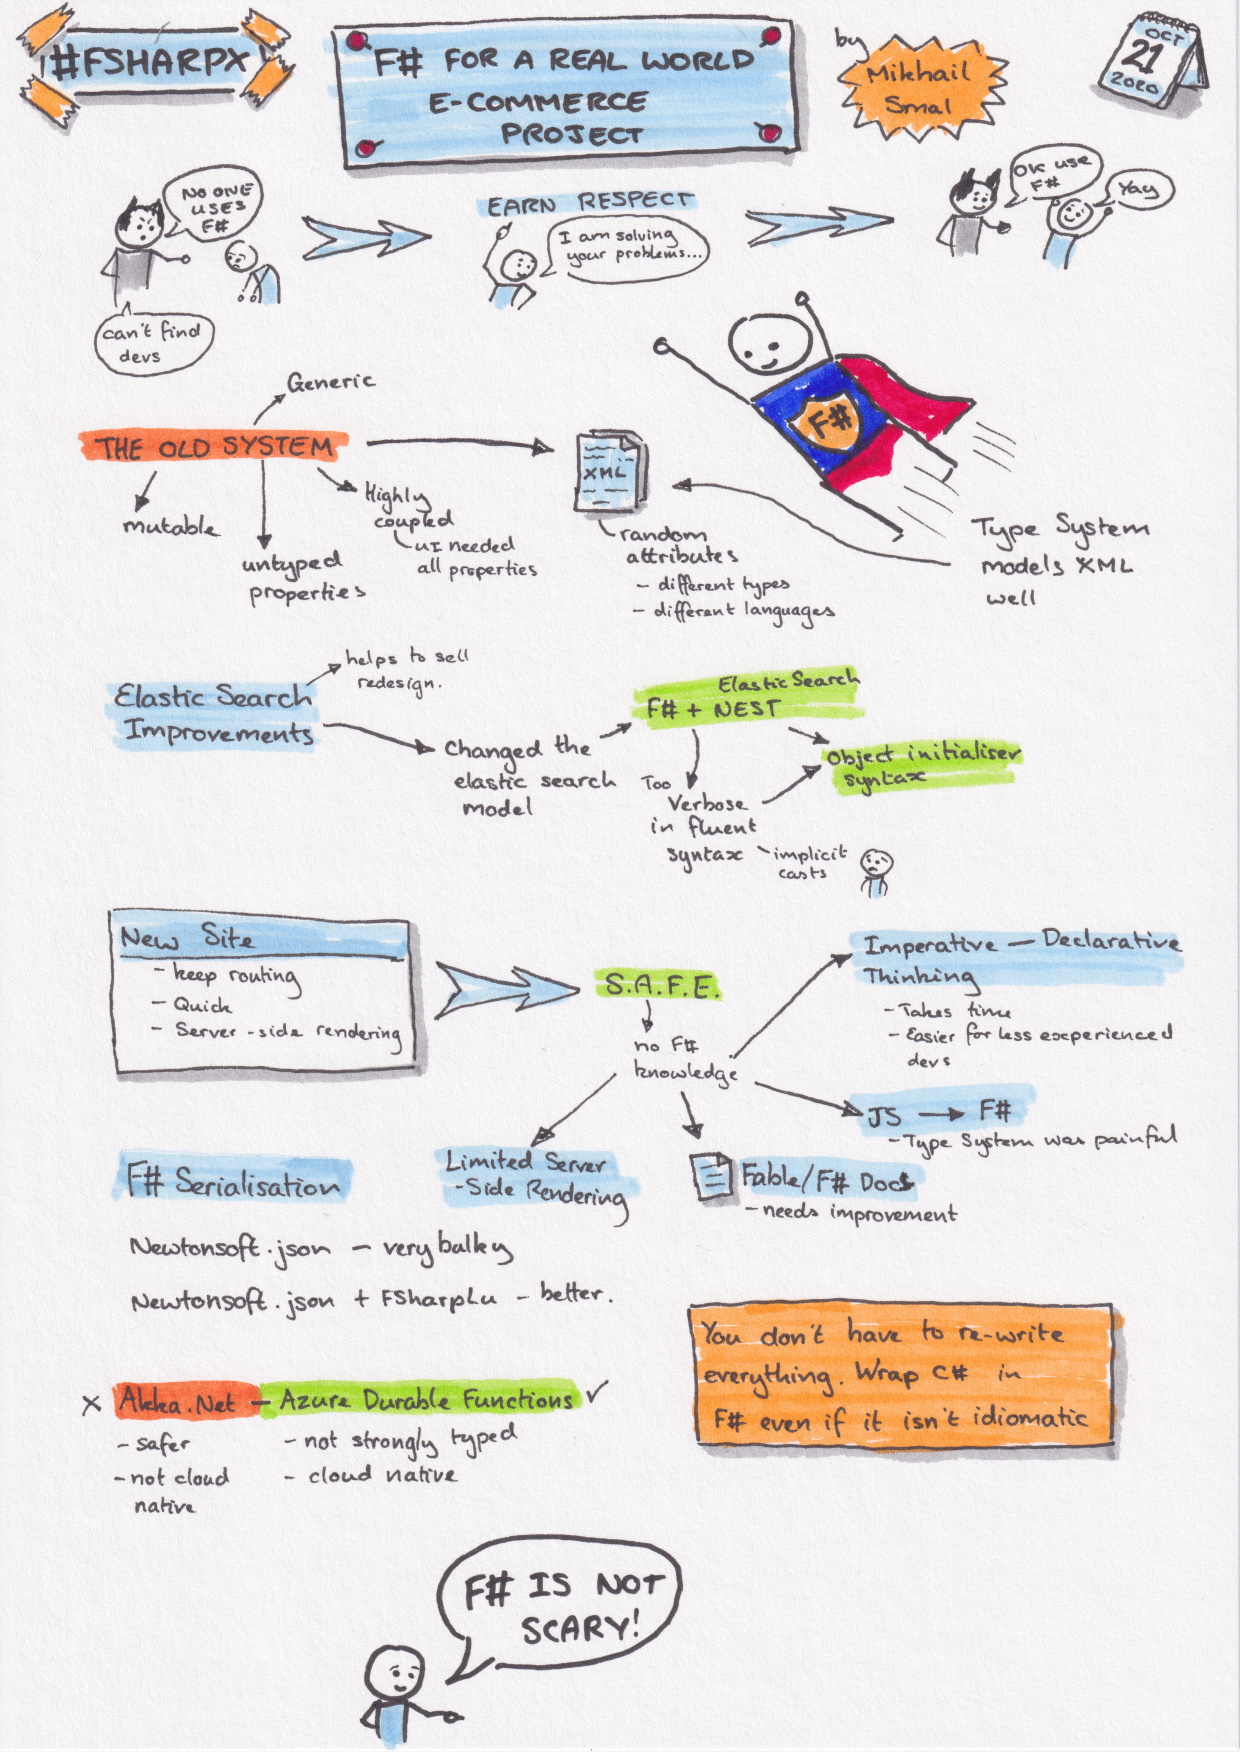 #FSHARPX
F# FOR A REAL WORLD
E-COMMERCE
PROJECT
by
Mikhail
Smal
OCT
21
2020
NO ONE
USES
F#
can't find
devs
EARN RESPECT
I am solving
your problems...
OK use
F#
Yay
Generic
THE OLD SYSTEM
mutable
untyped
properties
Highly
coupled
UI needed
all properties
XML
random
attributes
- different types
- different languages
F#
Type System
models XML
well
Elastic Search
Improvements
helps to sell
redesign.
Changed the
elastic search
model
Elastic Search
F# + NEST
Too
Verbose
in fluent
syntax
implicit
casts
Object initialiser
syntax
New Site
- keep routing
- Quick
- Server-side rendering
S.A.F.E.
no F#
knowledge
Imperative — Declarative
Thinking
- Takes time
- Easier for less experienced
devs
JS → F#
- Type System was painful
Limited Server
-Side Rendering
Fable/F# Docs
- needs improvement
F# Serialisation
Newtonsoft.json - very bulky
Newtonsoft.json + FSharpLu - better.
You don't have to re-write
everything. Wrap C# in
F# even if it isn't idiomatic
x Akka.Net - Azure Durable Functions ✓
- safer
- not cloud
native
- not strongly typed
- cloud native
F# IS NOT
SCARY!